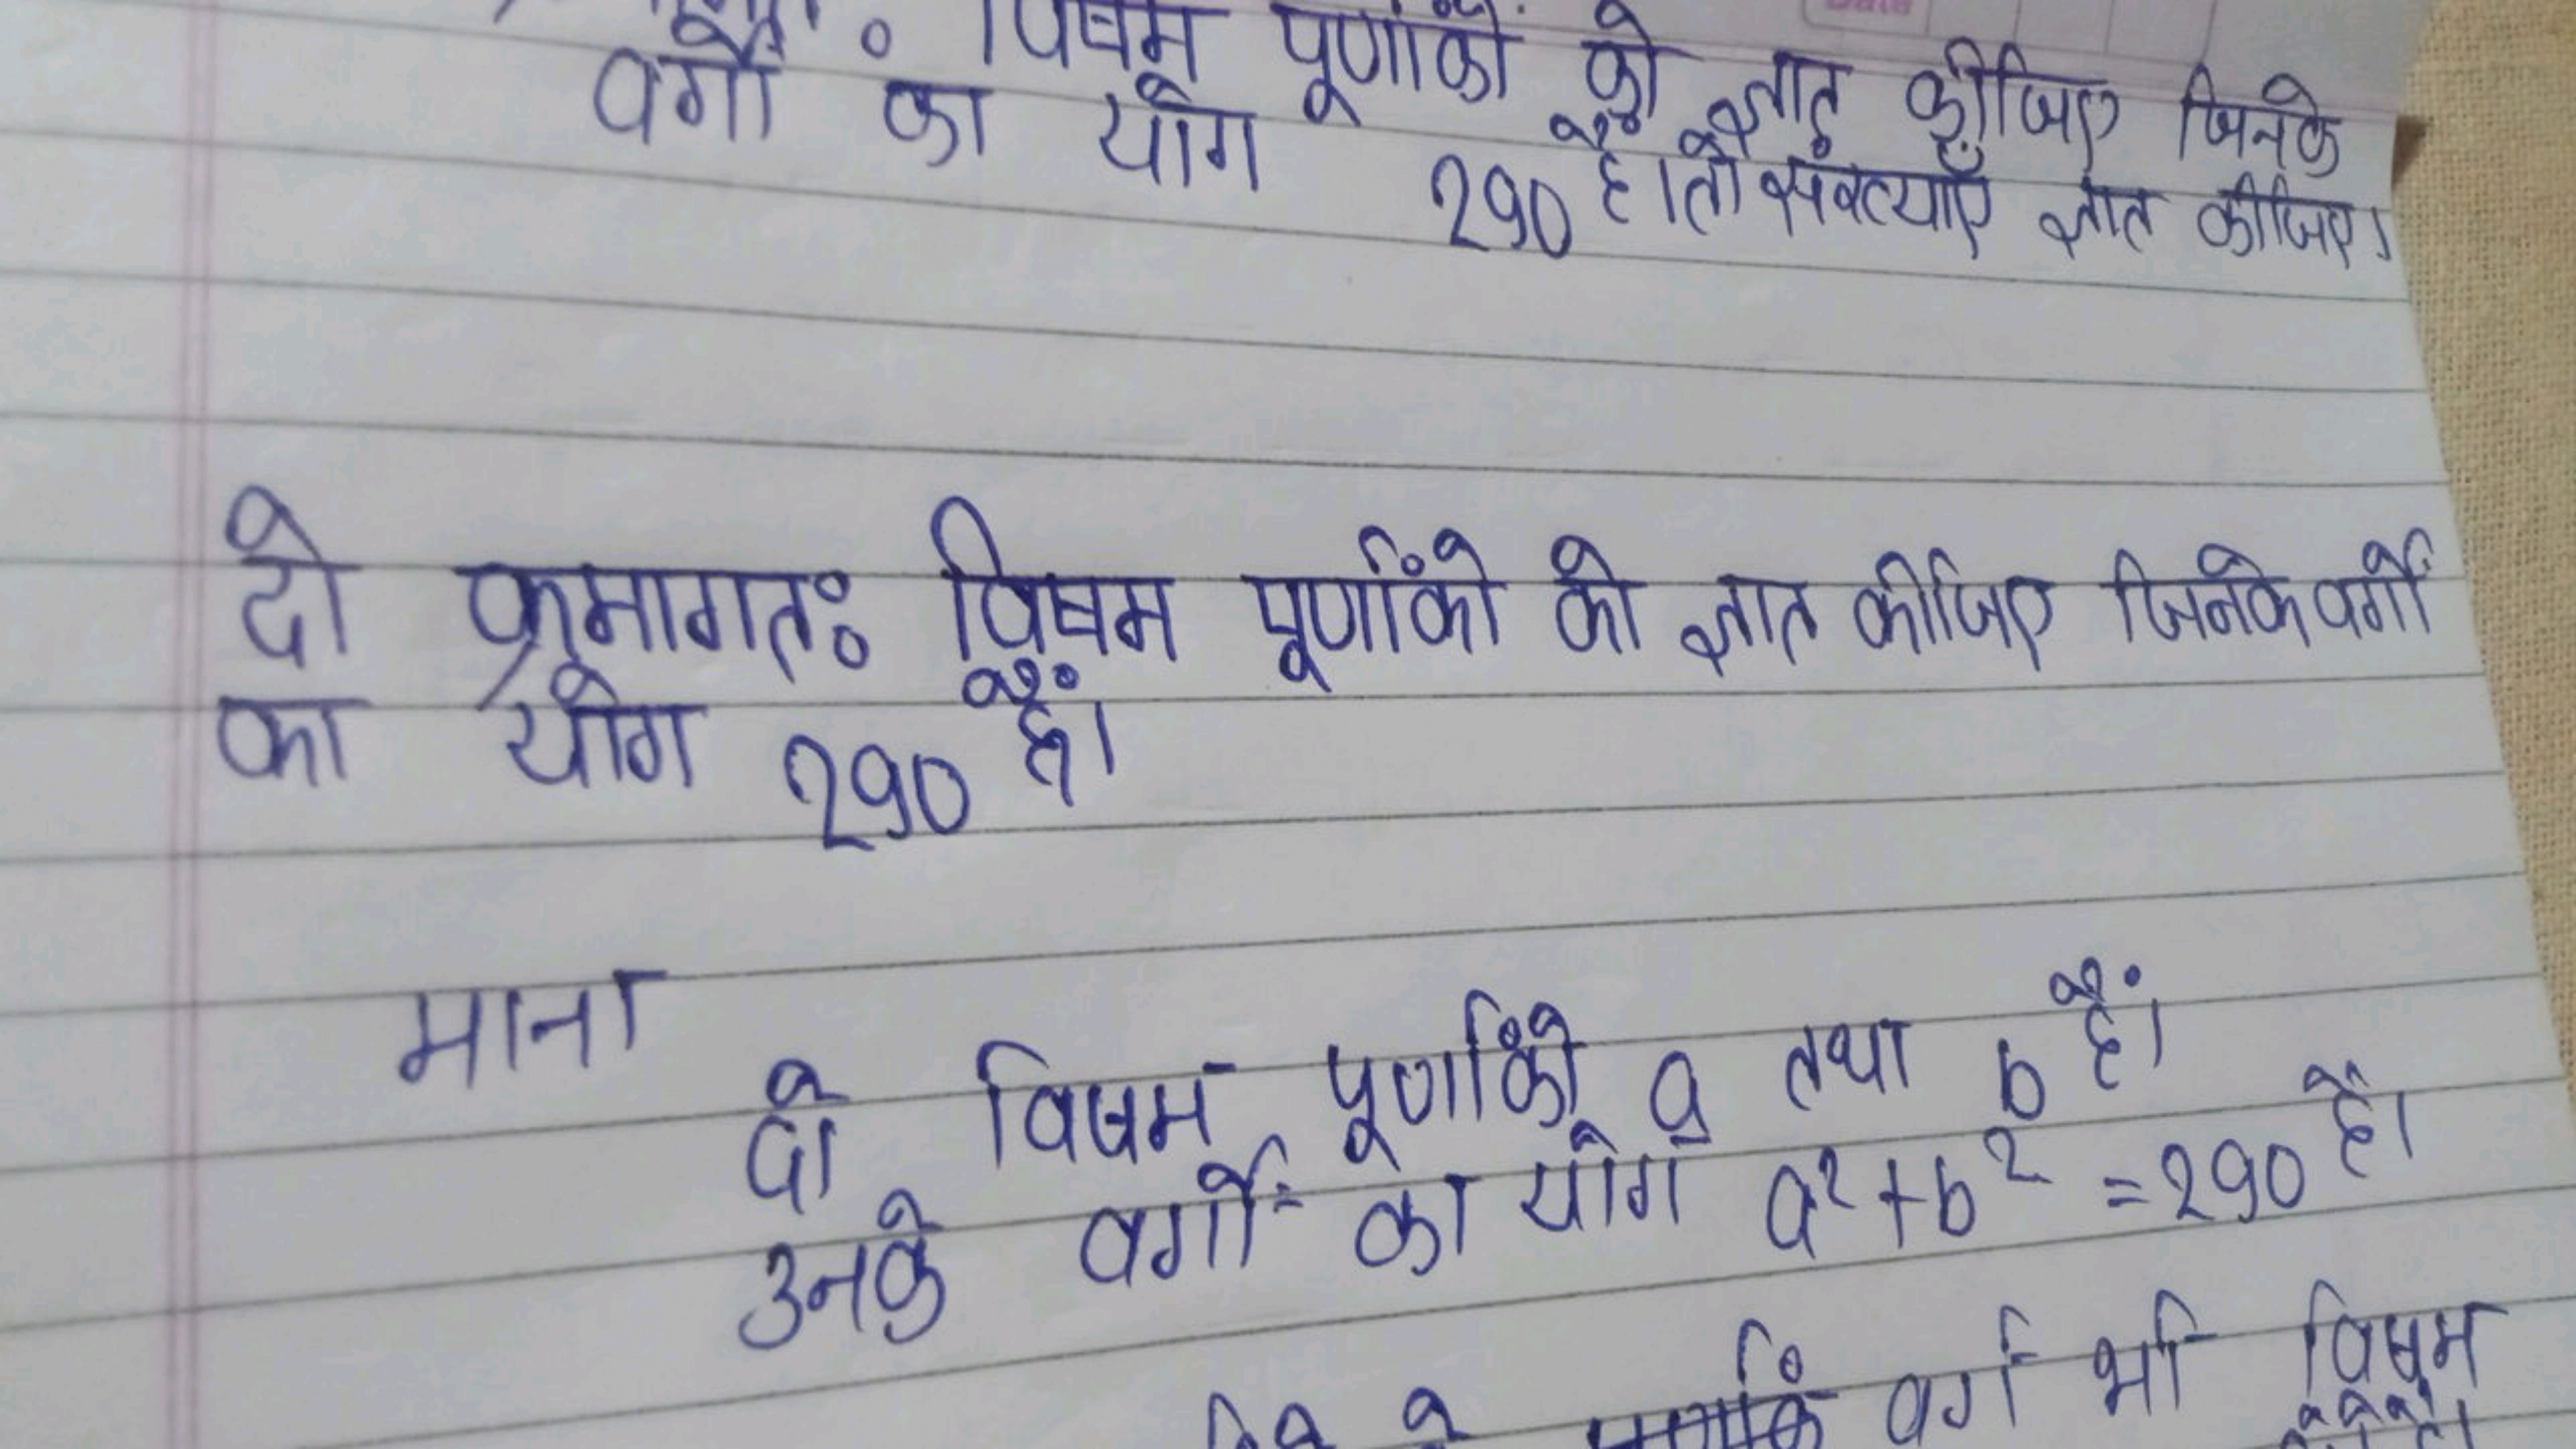 विषम पूर्णांकों को ज्ञात कीजिए जिनके
वर्गों का योग 290 है। तो संख्याएँ ज्ञात कीजिए।
दो क्रमागतः विषम पूर्णांको को ज्ञात कीजिए जिनके वर्गों
का योग 290 हैं।
माना
दो विषम पूर्णांकों a तथा b हैं।
उनके वर्गों का योग a² + b² = 290 है।
वर्ग भी विषम